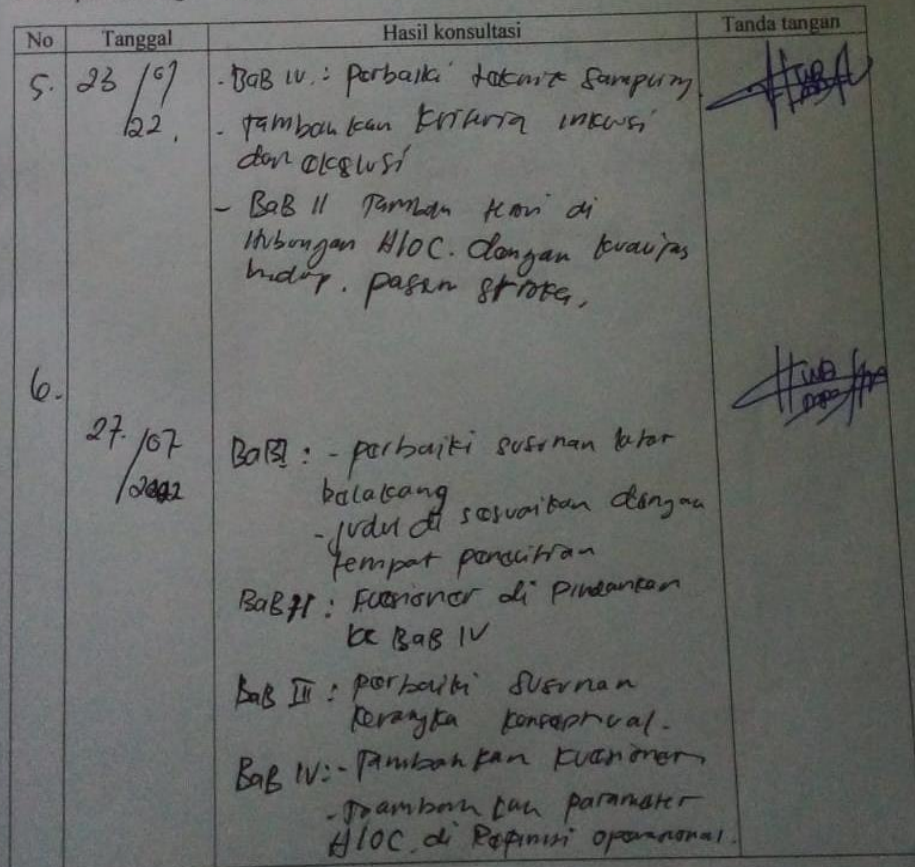 No Tanggal Hasil konsultasi Tanda tangan
5. 23 /07 /22. - BaB IV. : perbaiki teknik sampling
- tambahkan kriteria inklusi
dan eksklusi
- BaB II Tambah teori di
Hubungan HLOC. dengan kualitas
hidup. pasien stroke,
6.
27. /07 /2022 BaB I : - perbaiki susunan latar
belakang
- judul di sesuaikan dengan
tempat penelitian
BaB II : Kuesioner di pindahkan
ke BaB IV
BaB III : perbaiki susunan
kerangka konseptual.
BaB IV : - Tambahkan kuesioner
- Tambahkan parameter
HLOC. di Definisi operasional.